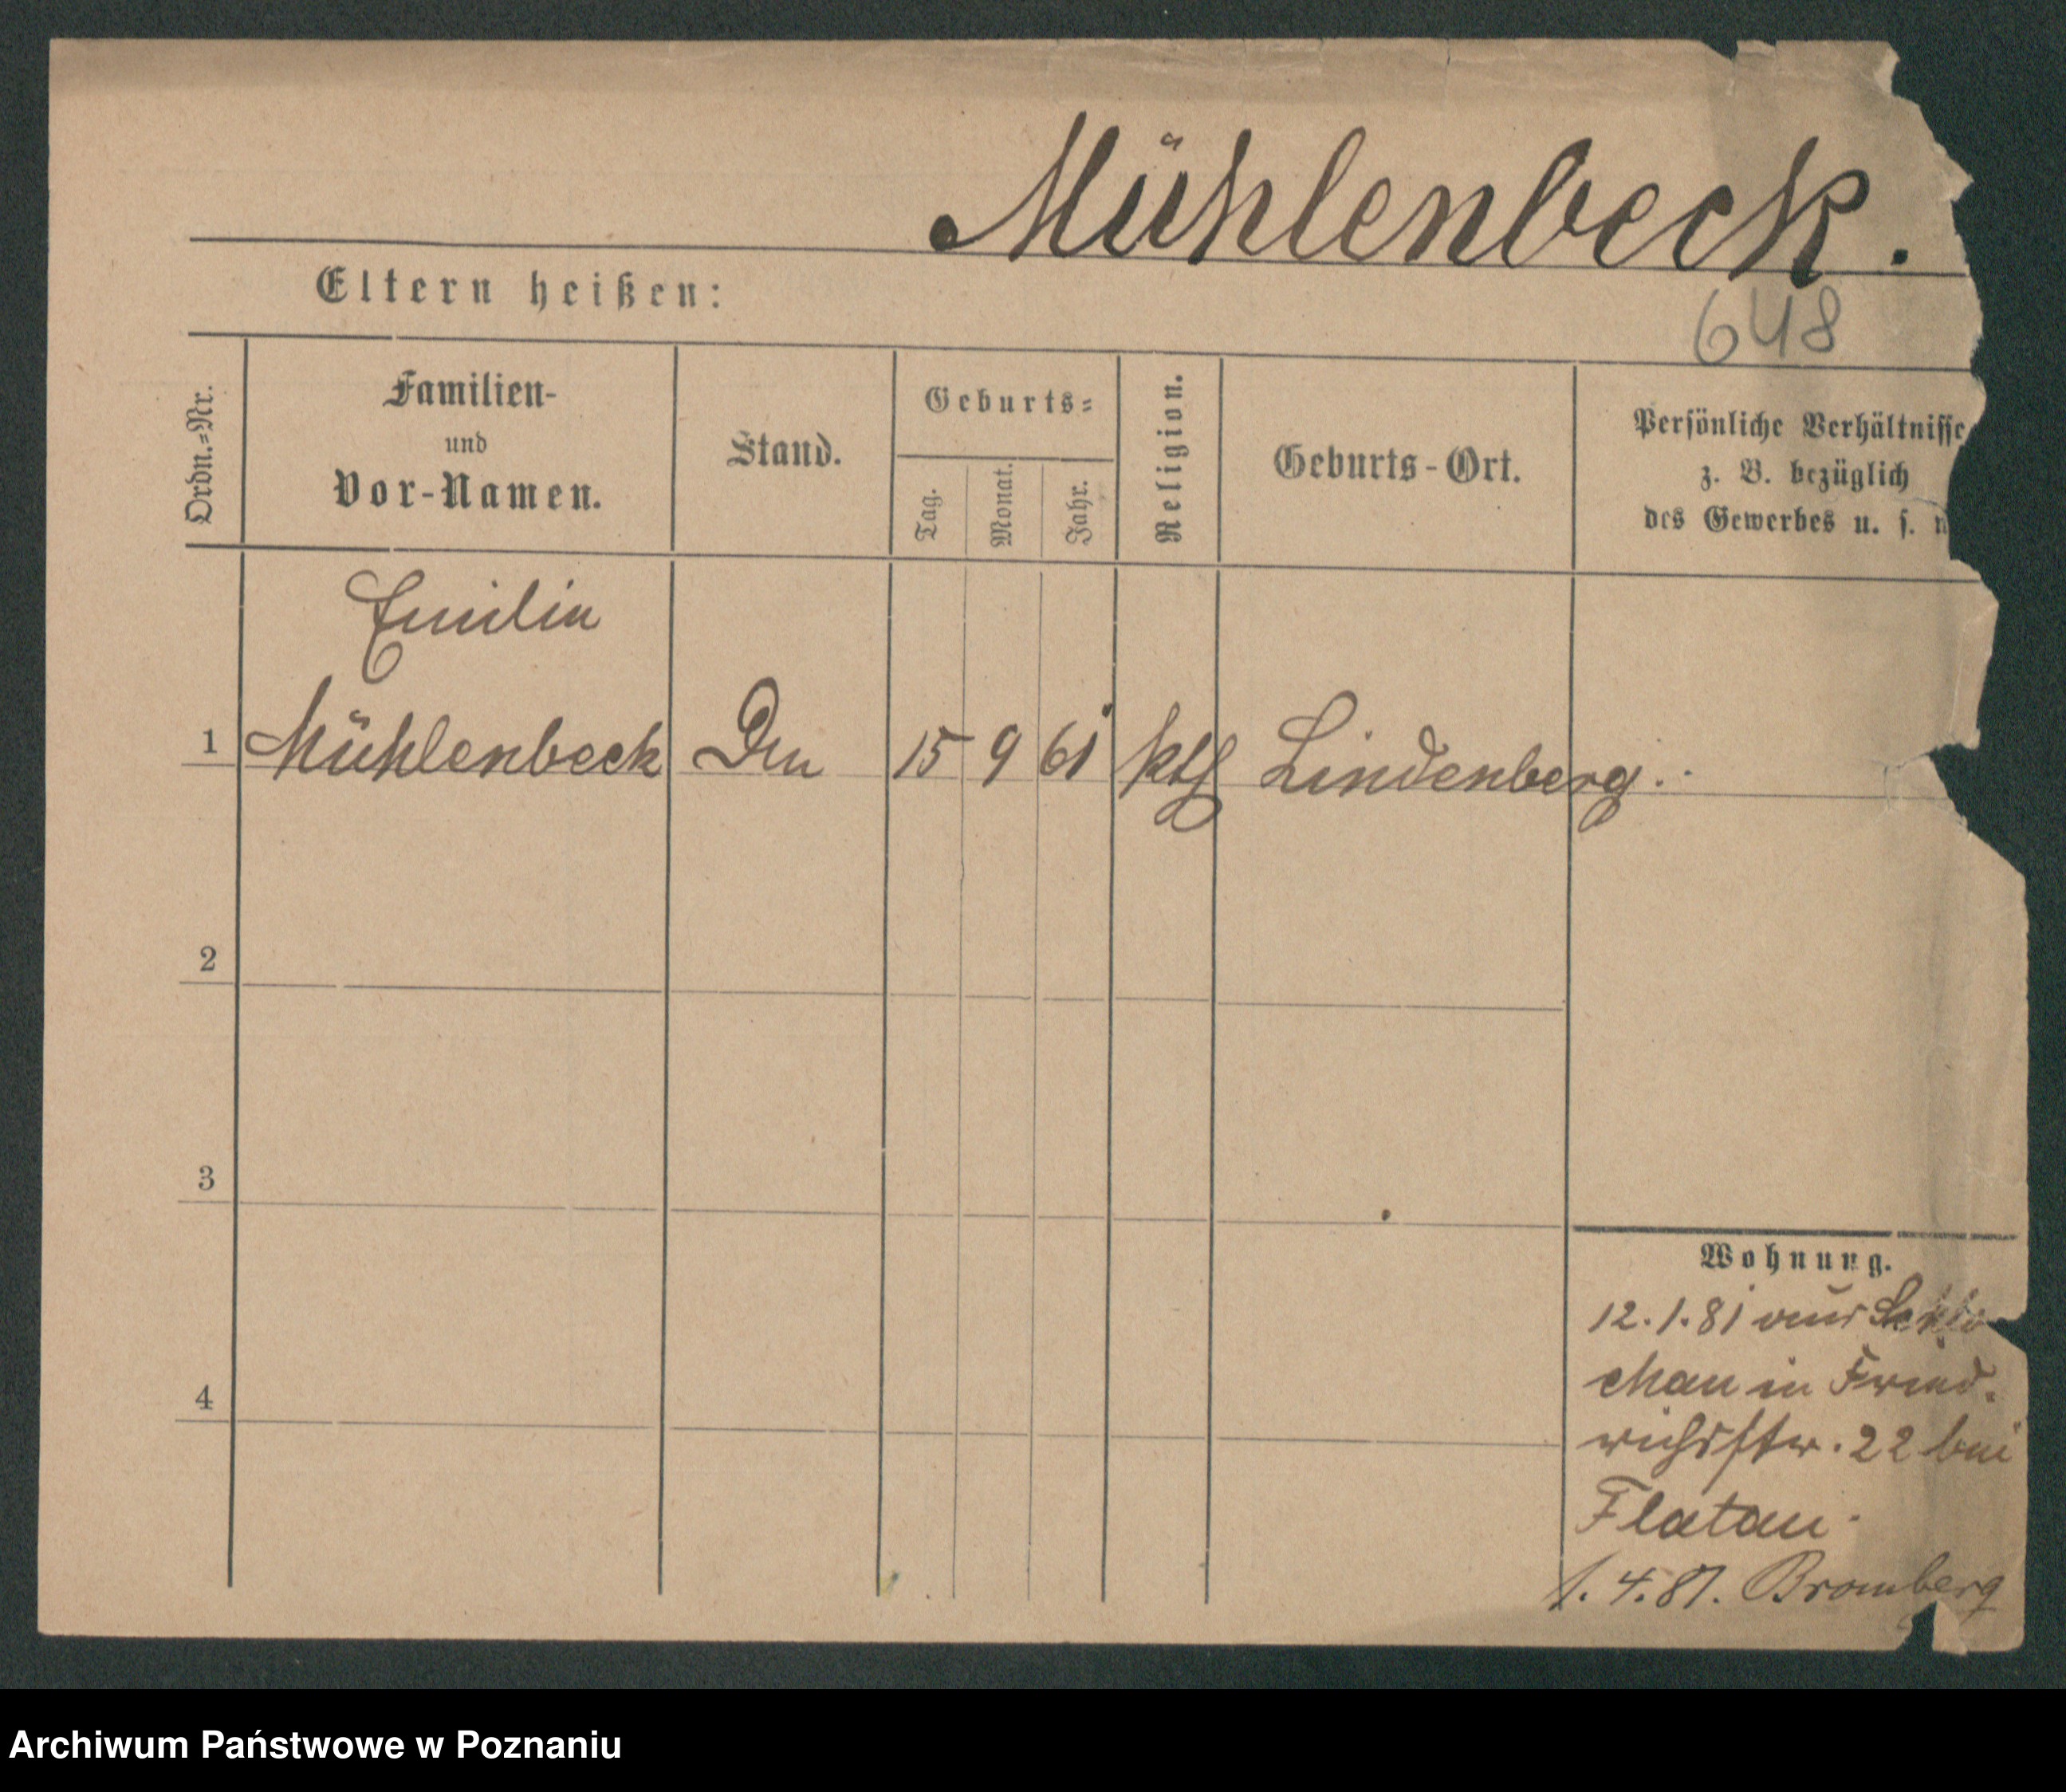 Mühlenbeck.
648
Eltern heißen:
Ordn.=Nr.
Familien-
und
Vor-Namen.
Stand.
Geburts=
Tag.
Monat.
Jahr.
Religion.
Geburts-Ort.
Persönliche Verhältnisse
z. B. bezüglich
des Gewerbes u. s.
Emilie
1 Mühlenbeck 15 9 61 kth Lindenberg.
2
3
4
Wohnung.
12.1.81 aus Schlo
chau in Fried.
richsstr. 22 bei
Flatau.
1.4.81. Bromberg
Archiwum Państwowe w Poznaniu